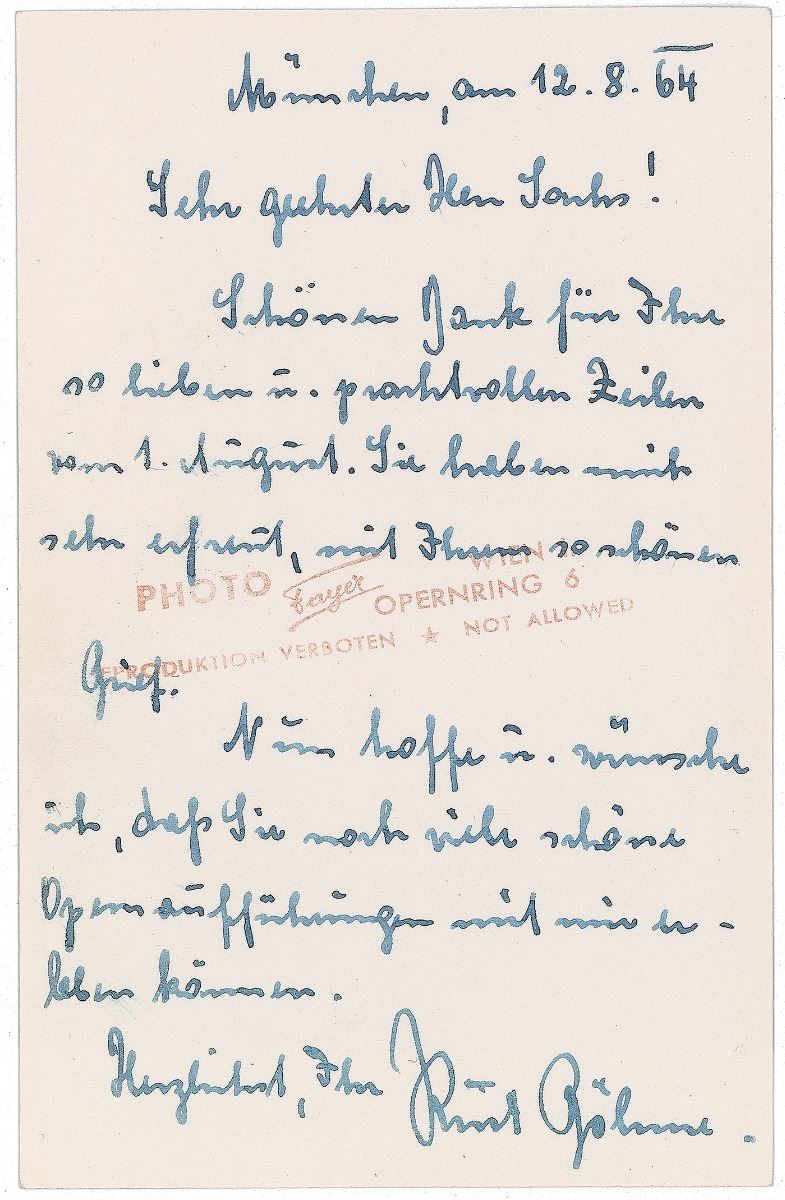 München, am 12. 8. 64
Sehr geehrter Herr Sachs!
Schönen Dank für Ihre
so lieben u. prachtvollen Zeilen
vom 1. August. Sie haben mich
sehr erfreut, mit Ihrem so schönen
WIEN
PHOTO Fayer OPERNRING 6
REPRODUKTION VERBOTEN ★ NOT ALLOWED
Brief.
Nun hoffe u. wünsche
ich, daß Sie noch viele schöne
Opernaufführungen mit mir er-
leben können.
Herzlichst, Ihr Kurt Böhme.